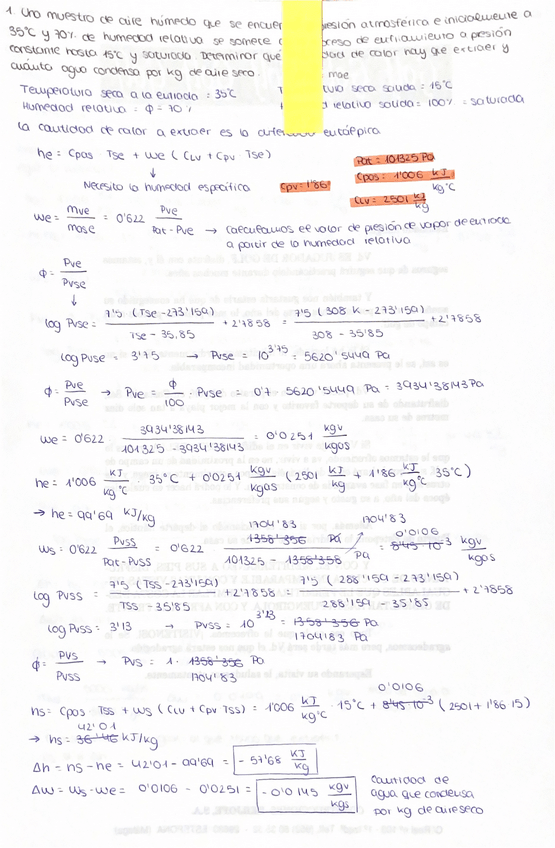 1. Una muestra de aire húmedo que se encuen resión atmosférica e inicialmente a
35°C y 70% de humedad relativa se somete ceso de enfriamiento a presión
constante hasta 15°C y saturada. Determinar qué dad de calor hay que extraer y
cuánta agua condensa por kg de aire seco. mae
Temperatura seca a la entrada = 35°C T tura seca salida = 15°C
Humedad relativa = Φ = 70% relativa salida = 100% = saturada
La cantidad de calor a extraer es la diferen entálpica
he = Cpas · Tse + we (CLV + Cpv Tse)
↓
Necesito la humedad específica
Cpv = 1'86
Pat = 101325 Pa
Cpas = 1'006 kJ/kg°C
CLV = 2501 kJ/kg
we = mve/mase = 0'622 Pve/(Pat - Pve) → calculamos el valor de presión de vapor de entrada
a partir de la humedad relativa
Φ = Pve/Pvse
↓
log Pvse = 7'5 (Tse - 273'159)/(Tse - 35.85) + 2'7858 = 7'5 (308 K - 273'159)/(308 - 35'85) + 2'7858
log Pvse = 3'75 → Pvse = 10^3'75 = 5620'5449 Pa
Φ = Pve/Pvse → Pve = Φ/100 · Pvse = 0'7 · 5620'5449 Pa = 3934'38143 Pa
we = 0'622 3934'38143/(101325 - 3934'38143) = 0'0251 kgv/kgas
he = 1'006 kJ/kg°C · 35°C + 0'0251 kgv/kgas (2501 kJ/kg + 1'86 kJ/kg°C 35°C)
→ he = 99'69 kJ/kg
1704'83 1704'83 0'0106
ws = 0'622 Pvss/(Pat - Pvss) = 0'622 1358'356 Pa/(101325 - 1358'356 Pa) = 8'45 · 10^-3 kgv/kgas
log Pvss = 7'5 (Tss - 273'159)/(Tss - 35'85) + 2'7858 = 7'5 (288'159 - 273'159)/(288'159 - 35'85) + 2'7858
log Pvss = 3'13 → Pvss = 10^3'23 = 1358'356 Pa
1704'83 Pa
Φ = Pvs/Pvss → Pvs = 1 · 1358'356 Pa
1704'83
0'0106
hs = Cpas · Tss + ws (CLV + Cpv Tss) = 1'006 kJ/kg°C · 15°C + 8'45 10^-3 (2501 + 1'86 · 15)
42'01
→ hs = 36'46 kJ/kg
Δh = hs - he = 42'01 - 99'69 = - 57'68 kJ/kg
Δw = ws - we = 0'0106 - 0'0251 = - 0'0145 kgv/kgs
Cantidad de
agua que condensa
por kg de aire seco